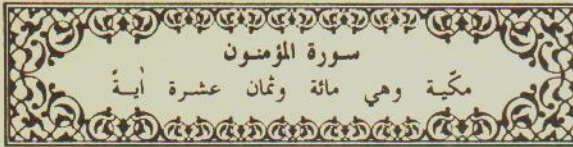 سورة المؤمنون
مكّية وهي مائة وثمان عشرة أيةً